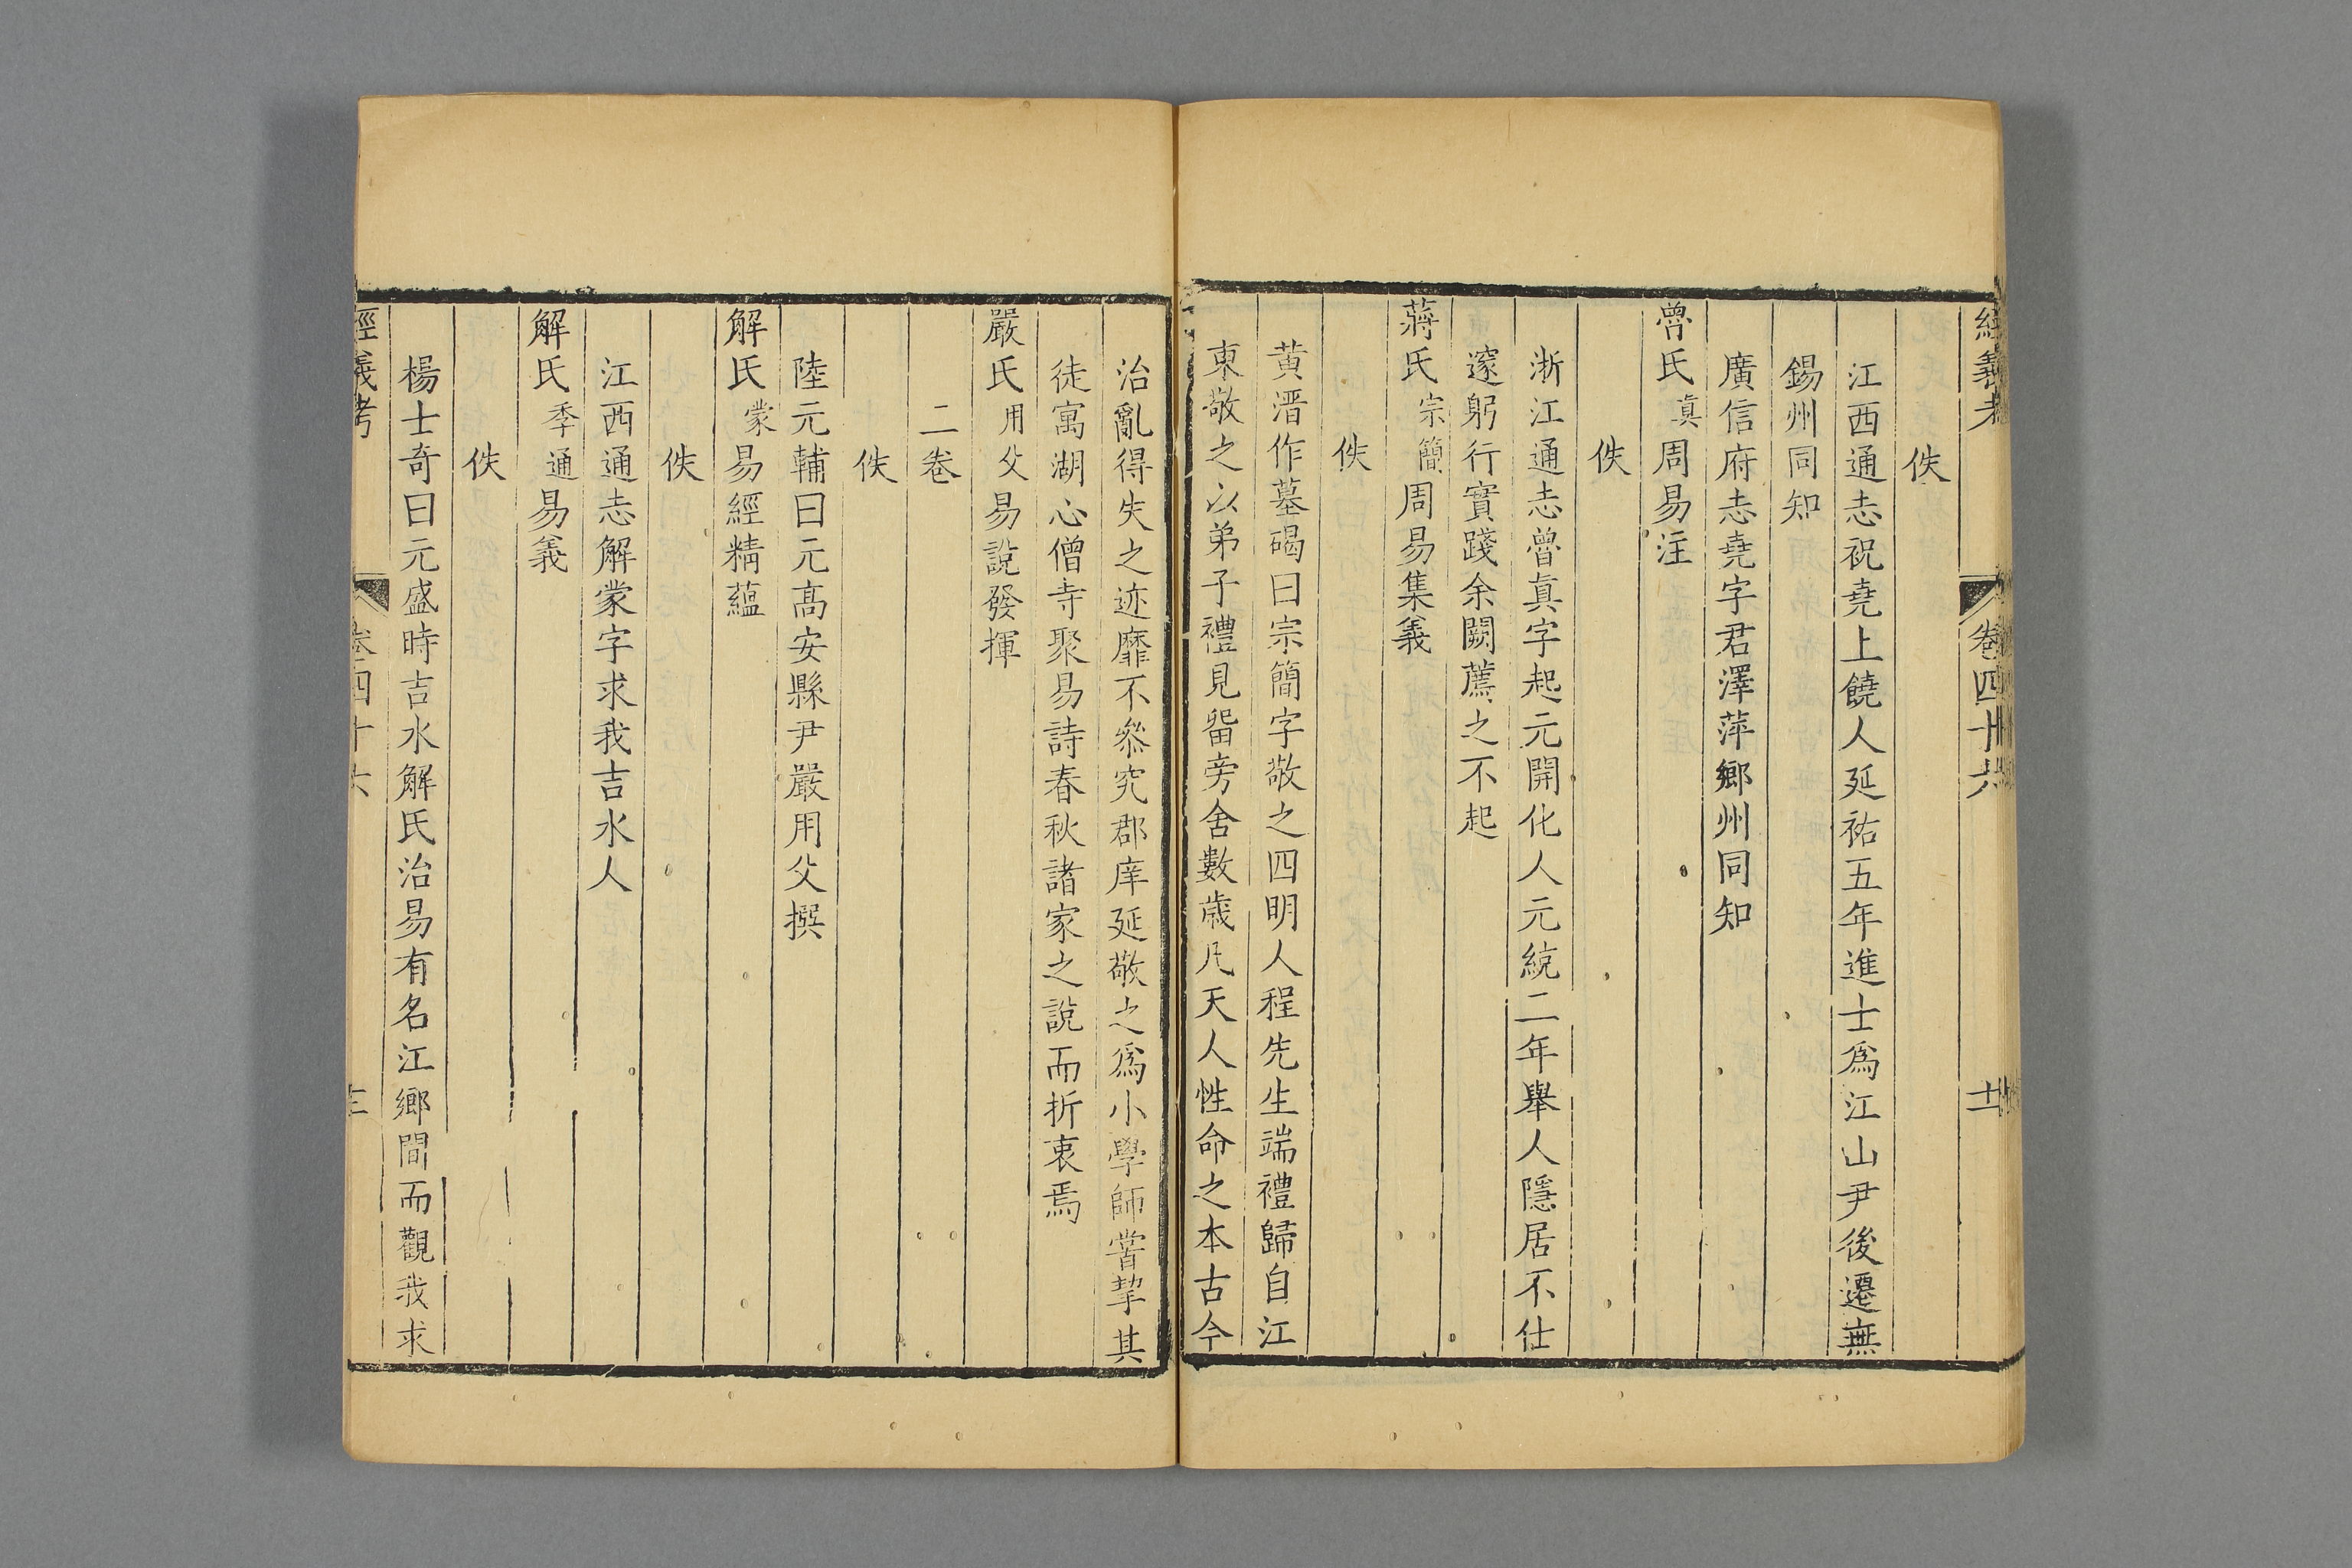 經義考 卷四十六 十一
佚
江西通志祝堯上饒人延祐五年進士爲江山尹後遷無
錫州同知
廣信府志堯字君澤萍鄉州同知
魯氏真周易注
佚
浙江通志魯真字起元開化人元統二年舉人隱居不仕
邃躬行實踐余闕薦之不起
蔣氏宗簡周易集義
佚
黃溍作墓碣曰宗簡字敬之四明人程先生端禮歸自江
東敬之以弟子禮見留旁舍數歲凡天人性命之本古今
治亂得失之迹靡不叅究郡庠延敬之爲小學師嘗挈其
徒寓湖心僧寺聚易詩春秋諸家之說而折衷焉
嚴氏用父易說發揮
二卷
佚
陸元輔曰元高安縣尹嚴用父撰
解氏蒙易經精蘊
佚
江西通志解蒙字求我吉水人
解氏季通易義
佚
楊士奇曰元盛時吉水解氏治易有名江鄉間而觀我求
經義考 卷四十六